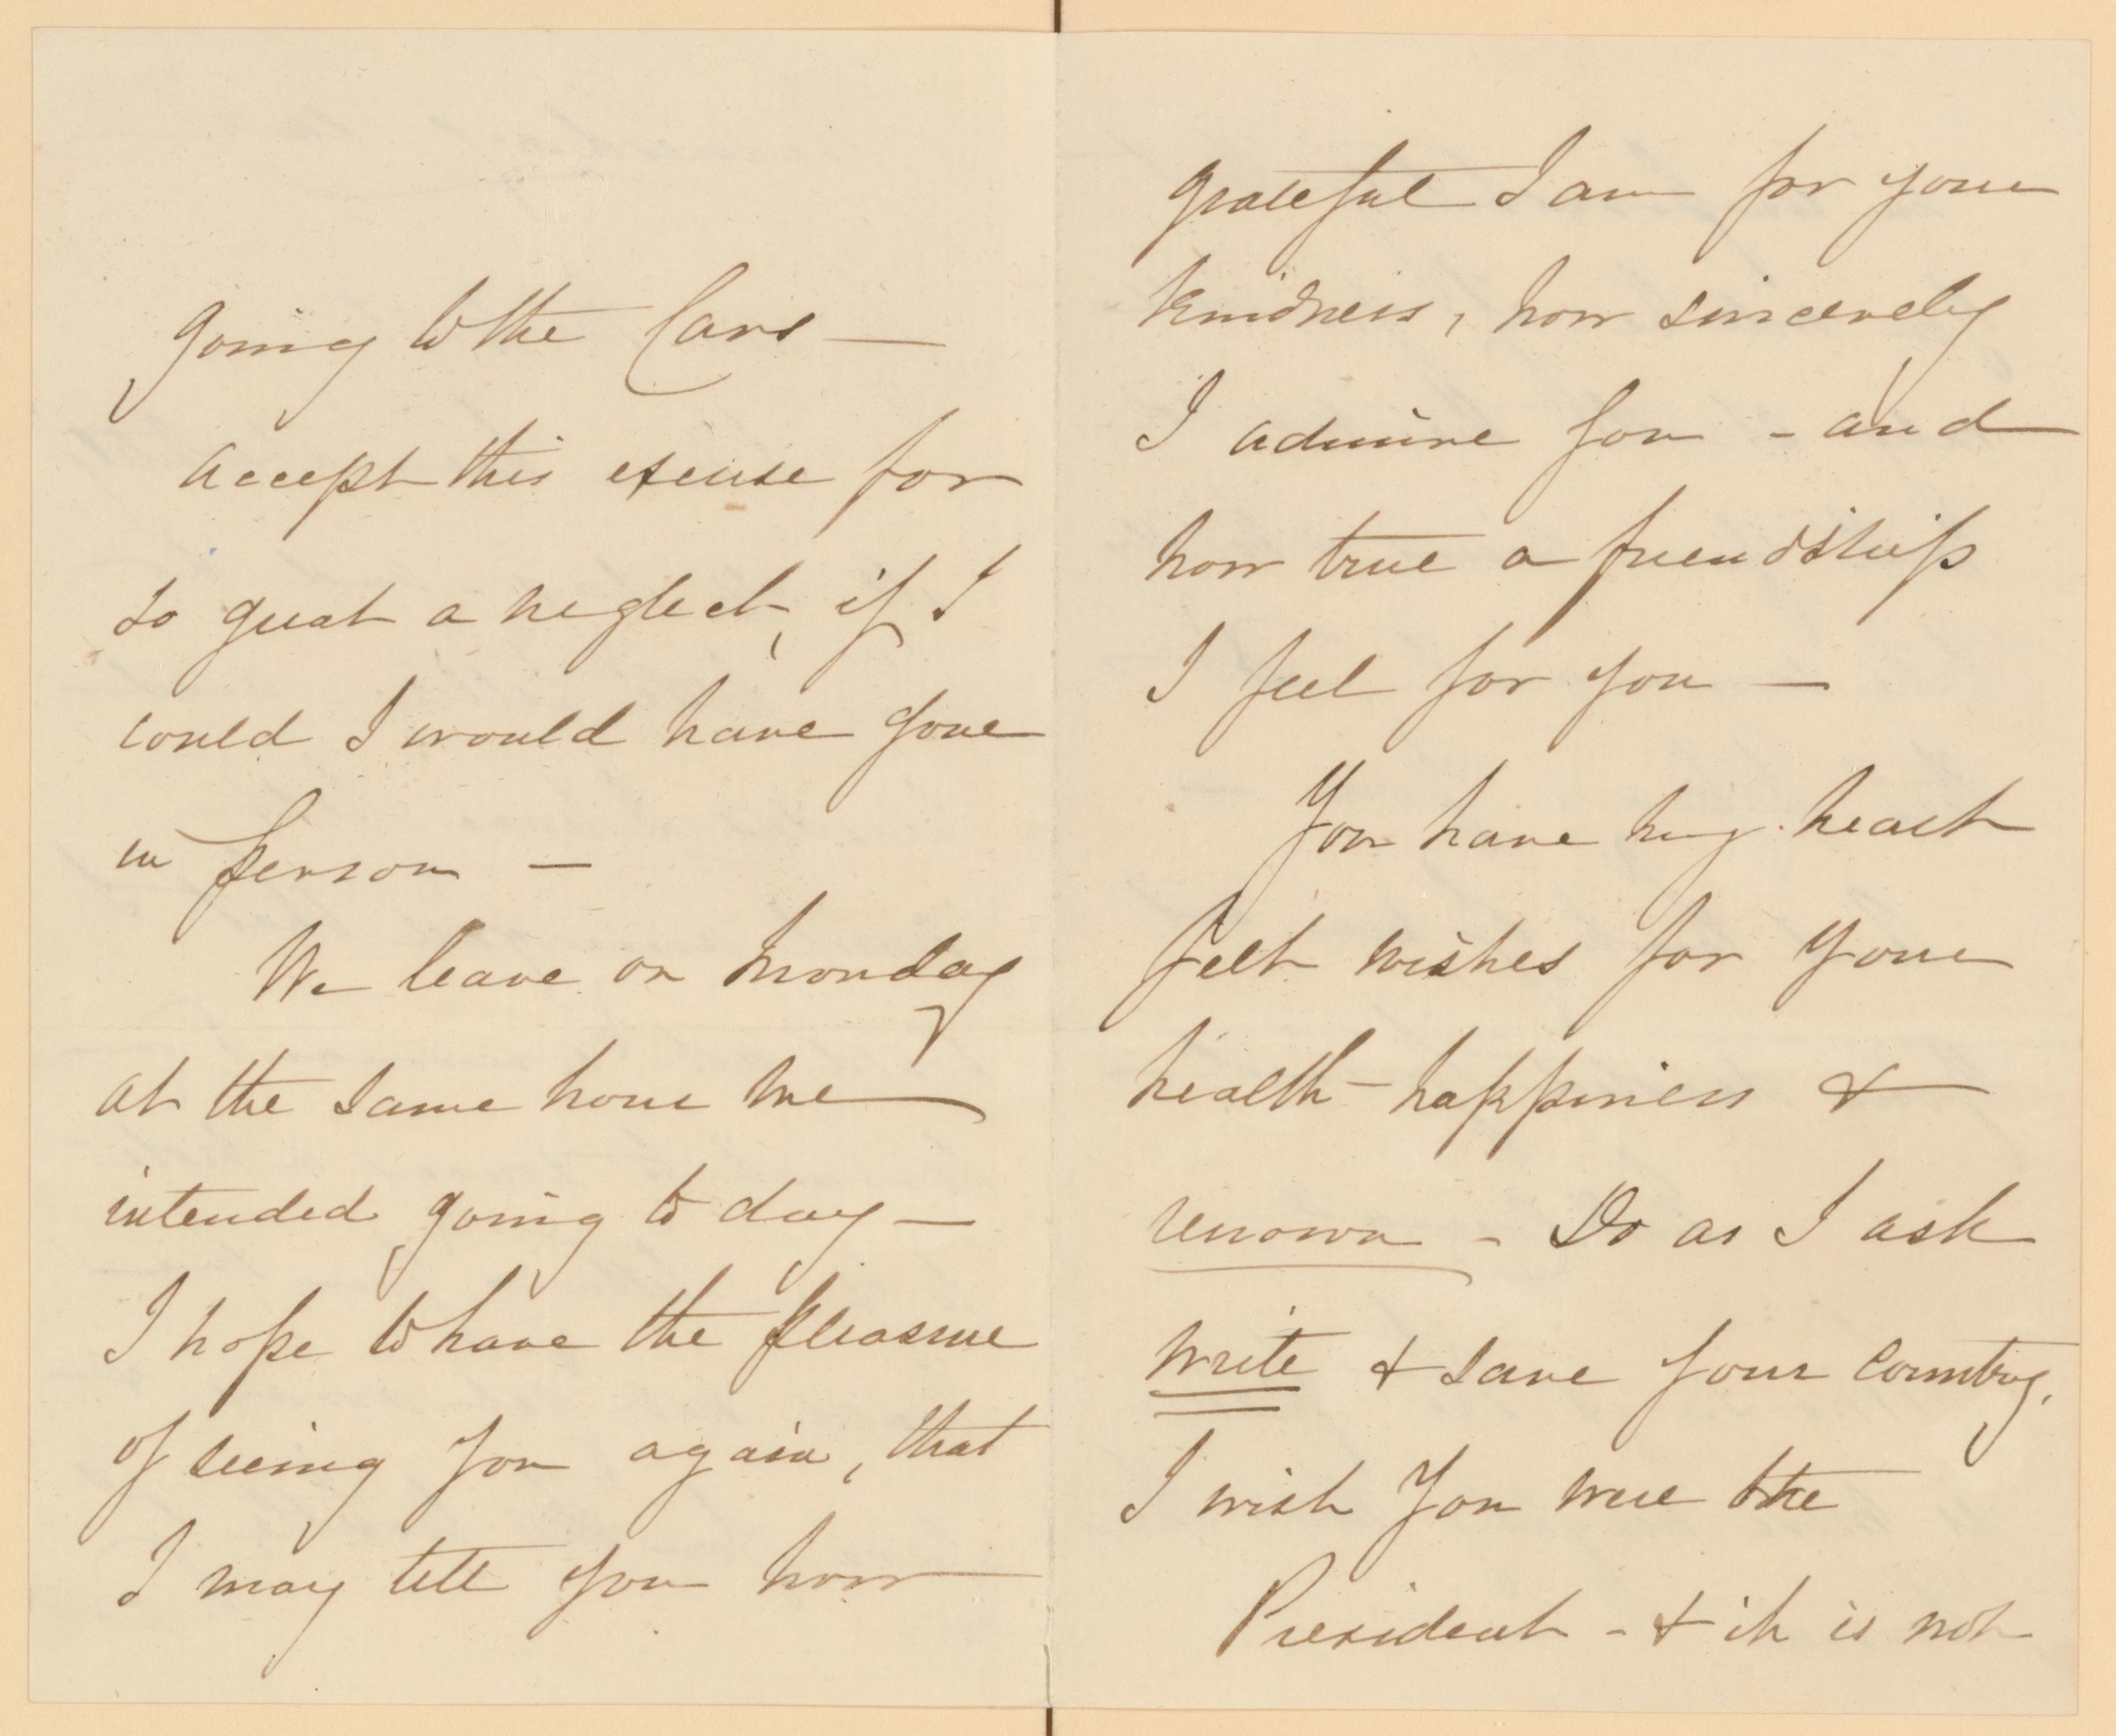 going to the Cars —
accept this excuse for
so great a neglect, if I
could I would have gone
in person —
We leave on Monday
at the same hour we
intended going to day —
I hope to have the pleasure
of seeing you again, that
I may tell you how
grateful I am for your
kindness, how sincerely
I admire you - and
how true a friendship
I feel for you —
You have my heart
felt wishes for your
health - happiness &
renown - Do as I ask
write & save your country.
I wish you were the
President - & it is not